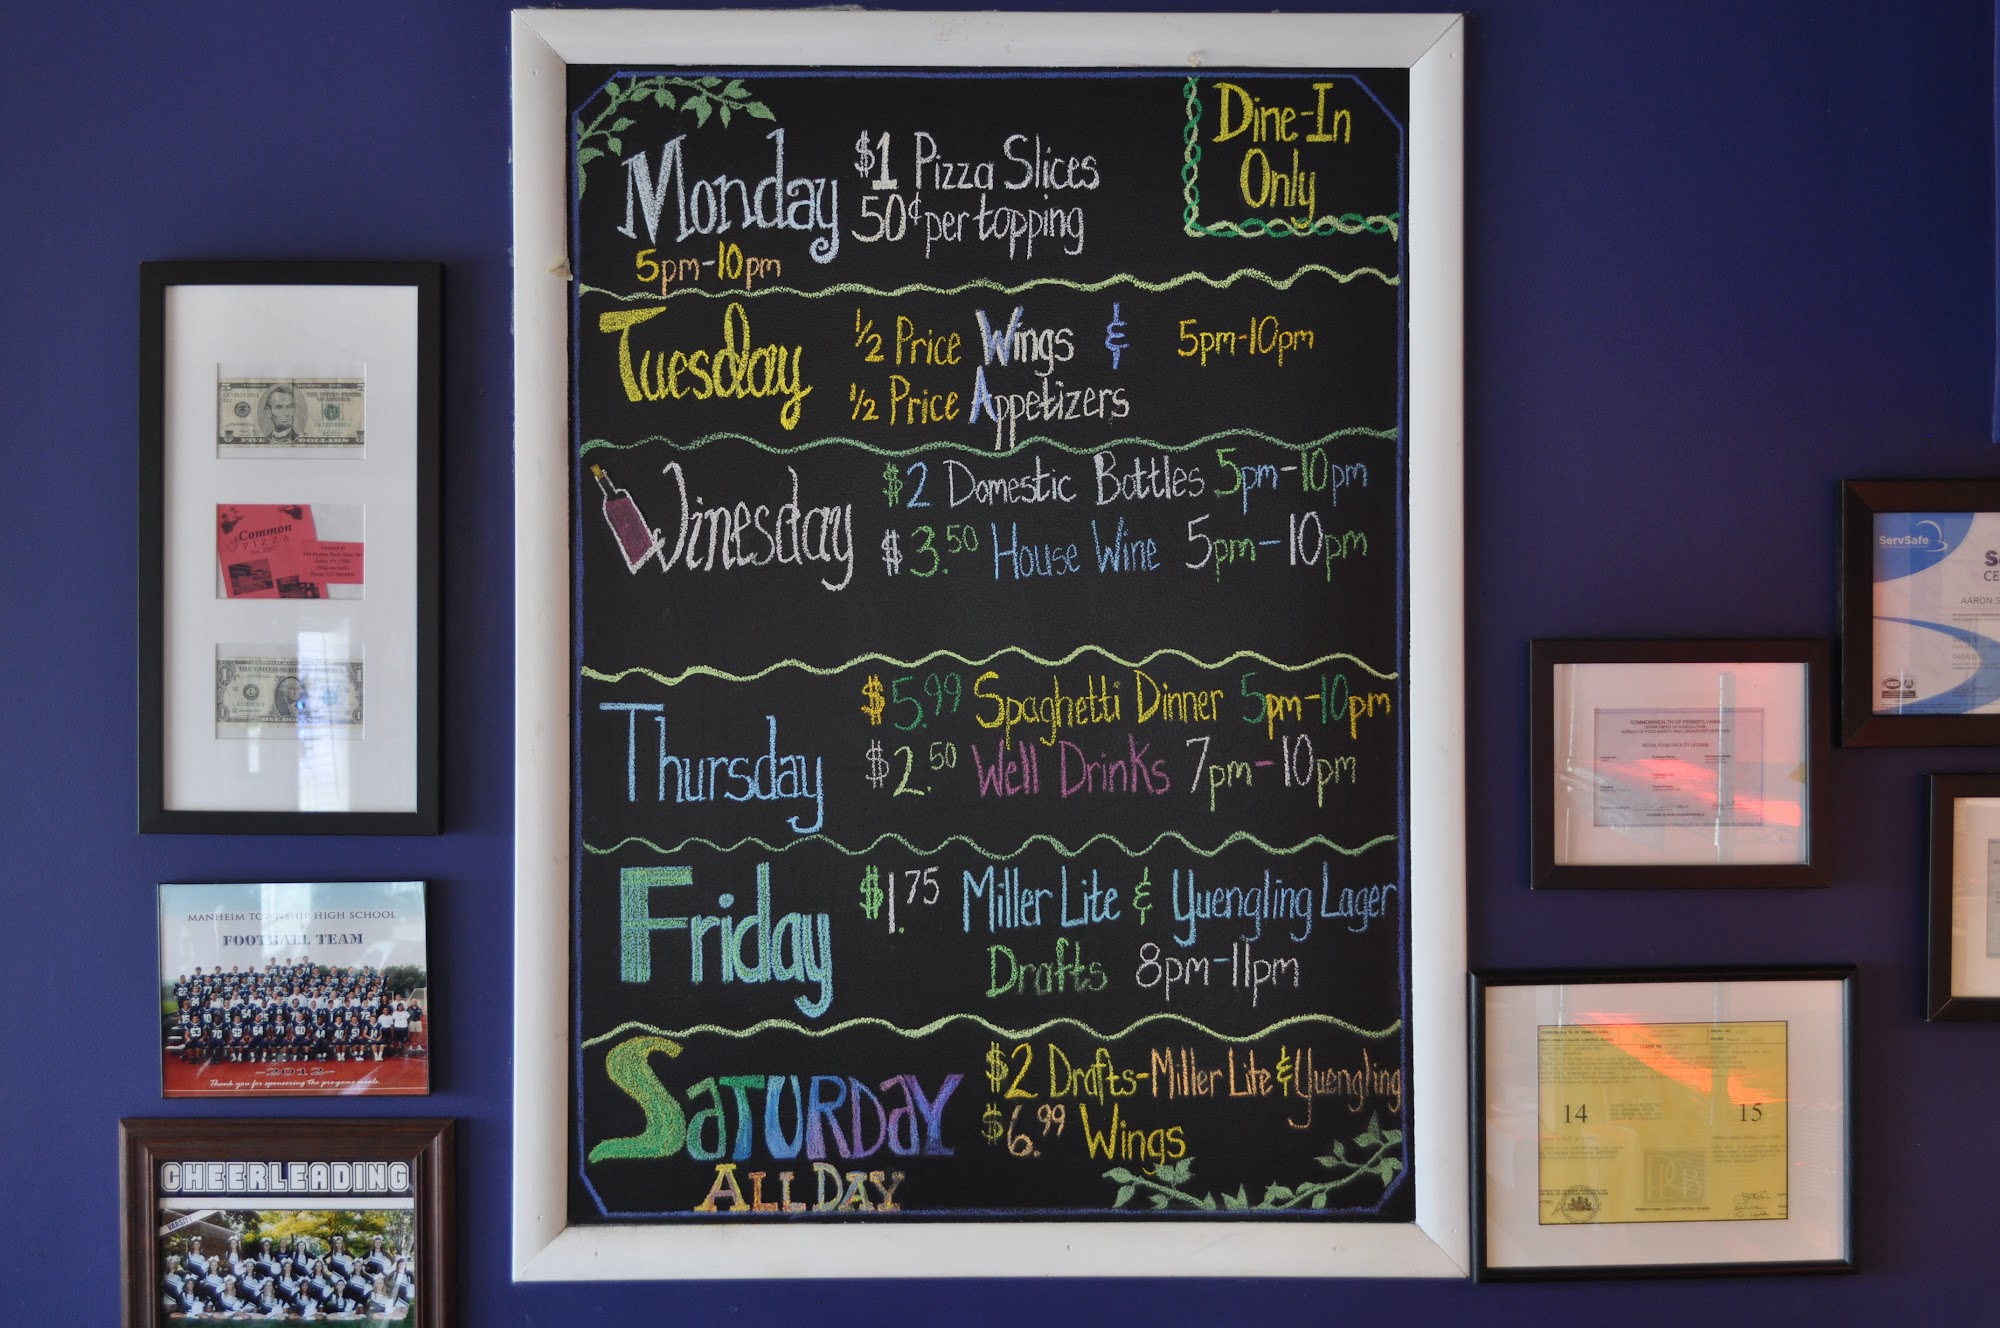 Dine-In
Only
Monday
$1 Pizza Slices
50¢ per topping
5pm-10pm
Tuesday
1/2 Price Wings & 5pm-10pm
1/2 Price Appetizers
Winesday
$2 Domestic Bottles 5pm-10pm
$3.50 House Wine 5pm-10pm
Thursday
$5.99 Spaghetti Dinner 5pm-10pm
$2.50 Well Drinks 7pm-10pm
Friday
$1.75 Miller Lite & Yuengling Lager
Drafts 8pm-11pm
Saturday
All Day
$2 Drafts-Miller Lite & Yuengling
$6.99 Wings
FIVE DOLLARS
Common
PIZZA
THE UNITED STATES
ONE DOLLAR
MANHEIM TOWNSHIP HIGH SCHOOL
FOOTBALL TEAM
-2012-
Thank you for sponsoring the pre-game meals.
CHEERLEADING
VARSITY
ServSafe
AARON S
COMMONWEALTH OF PENNSYLVANIA
DEPARTMENT OF AGRICULTURE
RETAIL FOOD FACILITY LICENSE
14
15
PENNSYLVANIA LIQUOR CONTROL BOARD